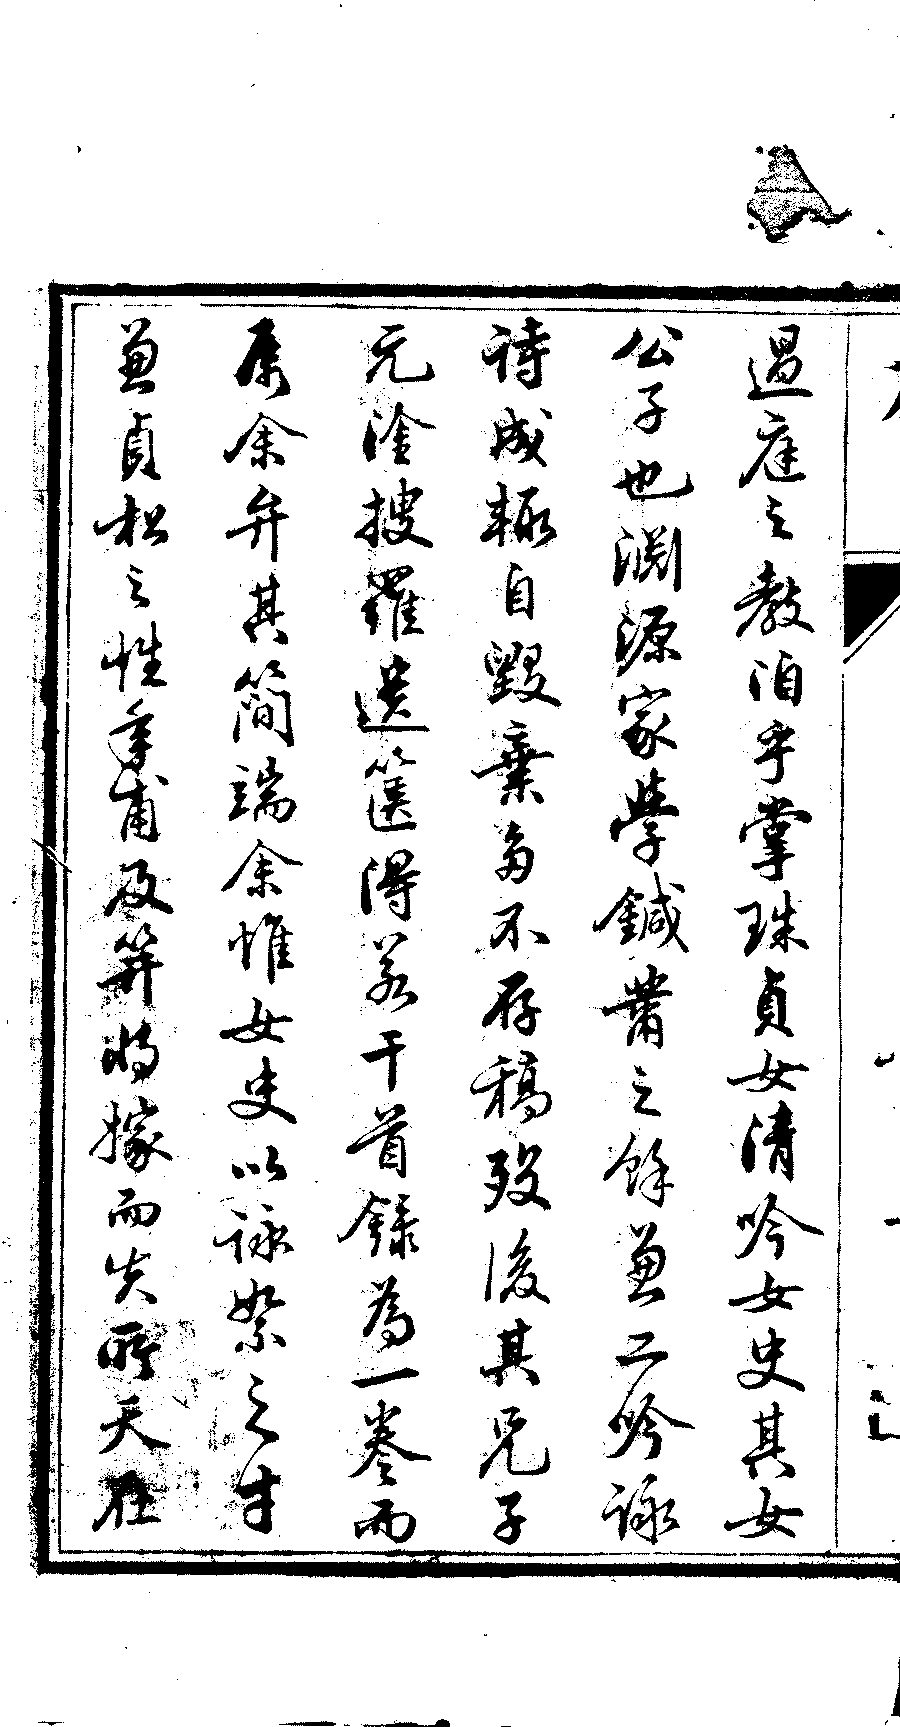 過庭之教洎乎掌珠貞女清吟女史其女
公子也淵源家學鍼黹之餘兼工吟詠
詩成輒自毀棄多不存稿歿後其兄子
元淦搜羅遺篋得若干首錄為一卷而
屬余弁其簡端余惟女史以詠絮之才
兼貞松之性年甫及笄將嫁而失所天在